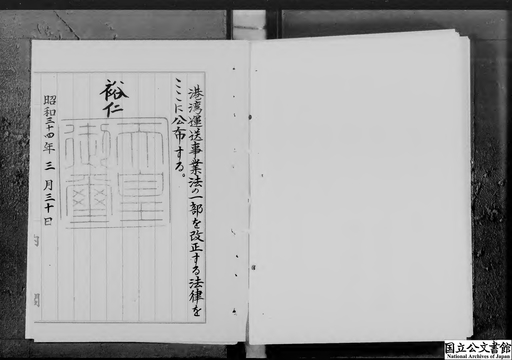 港湾運送事業法の一部を改正する法律を
ここに公布する。
裕仁
天皇
御璽
昭和三十四年三月三十日
国立公文書館
National Archives of Japan